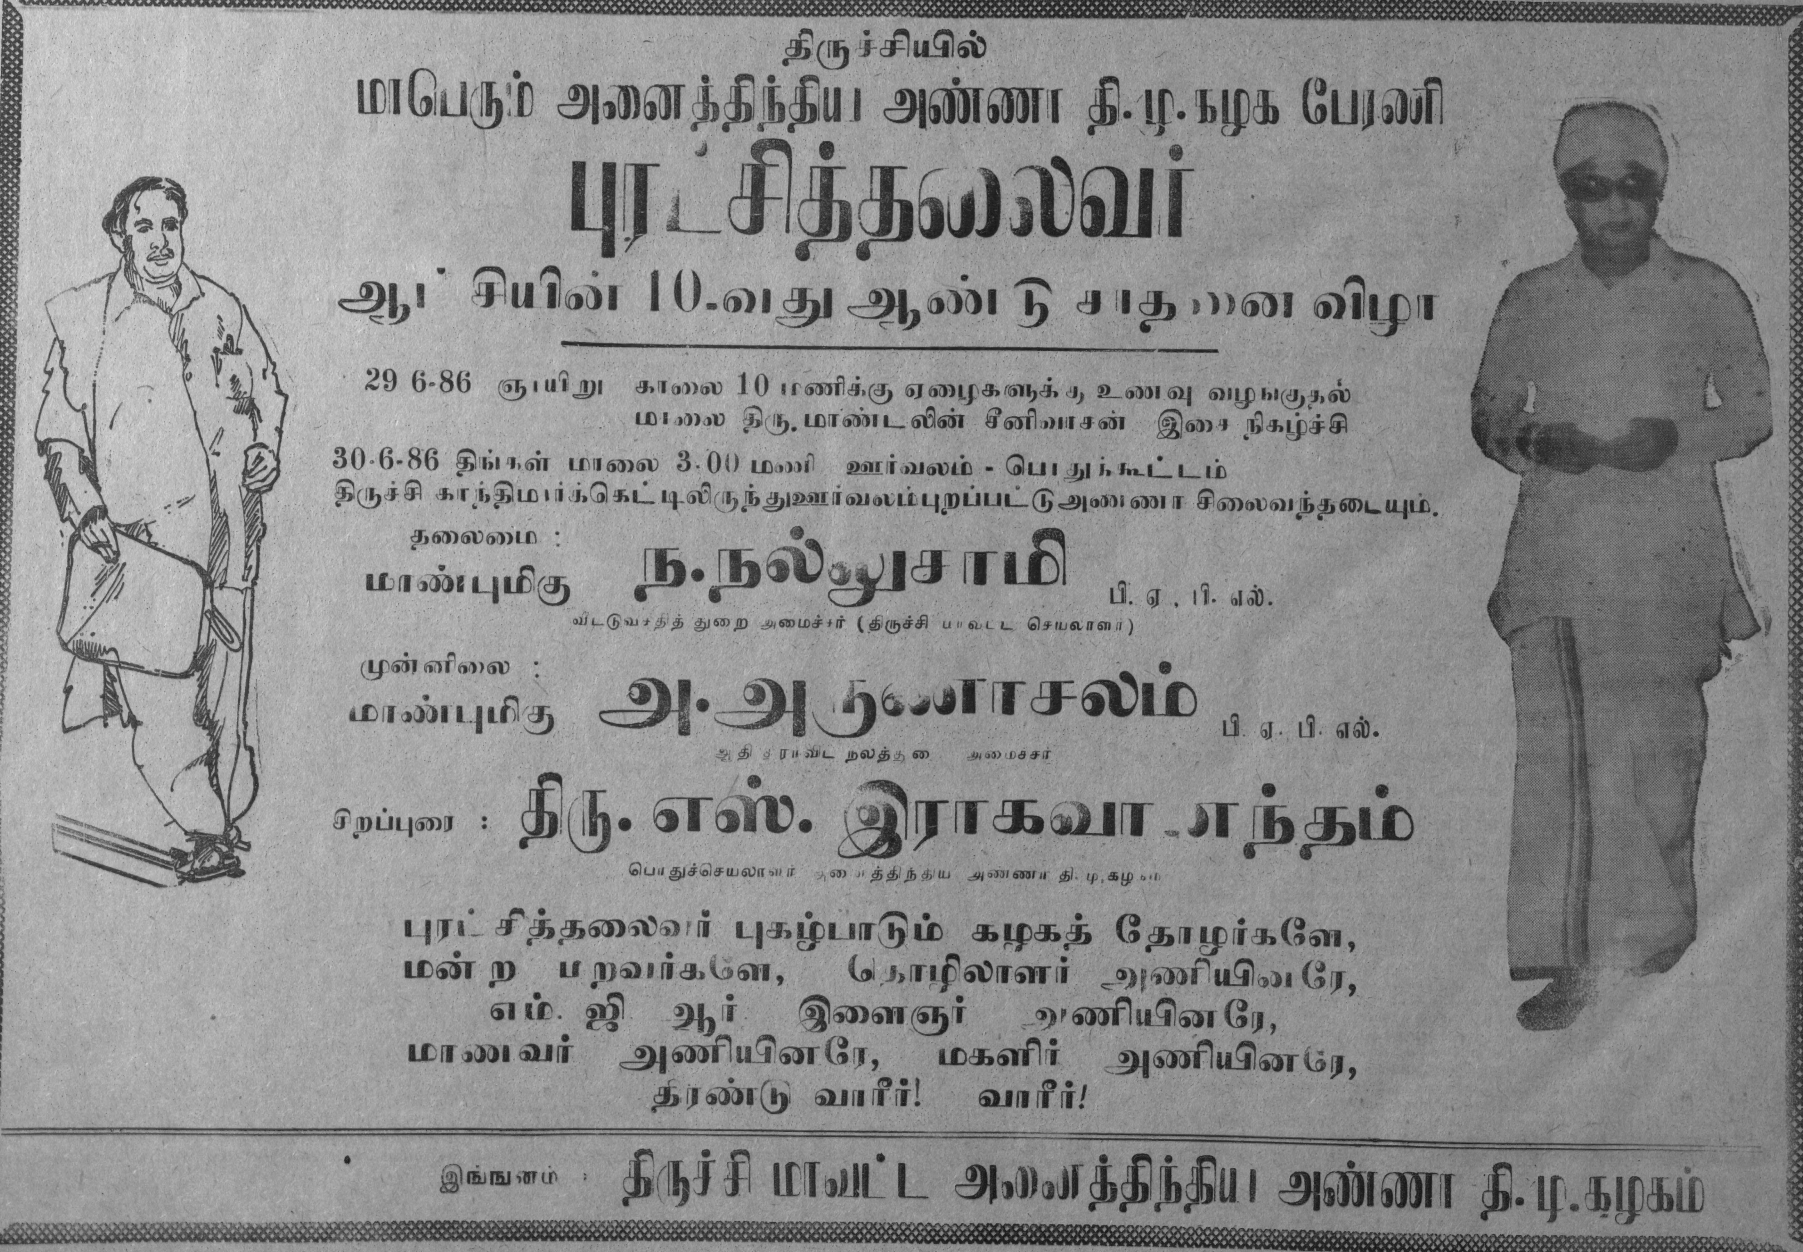 திருச்சியில்
மாபெரும் அனைத்திந்திய அண்ணா தி.மு.கழக பேரணி
புரட்சித்தலைவர்
ஆட்சியின் 10-வது ஆண்டு சாதனை விழா
29 6-86 ஞாயிறு காலை 10 மணிக்கு ஏழைகளுக்கு உணவு வழங்குதல்
மாலை திரு. மாண்டலின் சீனிவாசன் இசை நிகழ்ச்சி
30-6-86 திங்கள் மாலை 3.00 மணி ஊர்வலம் - பொதுக்கூட்டம்
திருச்சி காந்திமார்க்கெட்டிலிருந்து ஊர்வலம் புறப்பட்டு அண்ணா சிலை வந்தடையும்.
தலைமை :
மாண்புமிகு ந.நல்லுசாமி பி. ஏ., பி. எல்.
வீட்டுவசதித் துறை அமைச்சர் (திருச்சி மாவட்ட செயலாளர்)
முன்னிலை :
மாண்புமிகு அ.அருணாசலம் பி. ஏ. பி. எல்.
ஆதி திராவிட நலத்துறை அமைச்சர்
சிறப்புரை : திரு. எஸ். இராகவானந்தம்
பொதுச்செயலாளர் அனைத்திந்திய அண்ணா தி.மு.கழகம்
புரட்சித்தலைவர் புகழ்பாடும் கழகத் தோழர்களே,
மன்ற மறவர்களே, தொழிலாளர் அணியினரே,
எம். ஜி. ஆர். இளைஞர் அணியினரே,
மாணவர் அணியினரே, மகளிர் அணியினரே,
திரண்டு வாரீர்! வாரீர்!
இங்ஙனம் : திருச்சி மாவட்ட அனைத்திந்திய அண்ணா தி.மு.கழகம்